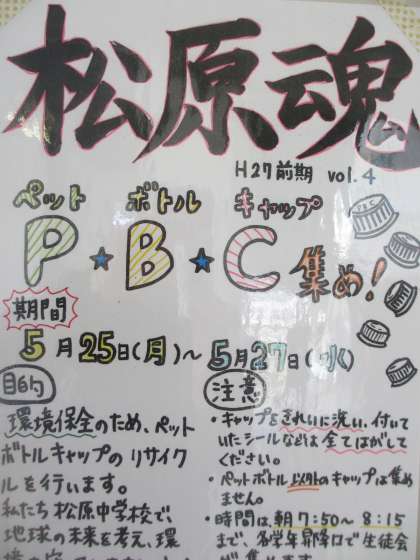 松原魂
H27前期 vol.4
ペット ボトル キャップ
P★B★C 集め!
期間
5月25日(月)〜5月27日(水)
目的
環境保全のため、ペット
ボトルキャップのリサイク
ルを行います。
私たち松原中学校で、
地球の未来を考え、環
注意
・キャップをきれいに洗い、付いて
いたシールなどは全てはがして
ください。
・ペットボトル以外のキャップは集め
ません。
・時間は、朝7:50〜8:15
まで、各学年昇降口で生徒会